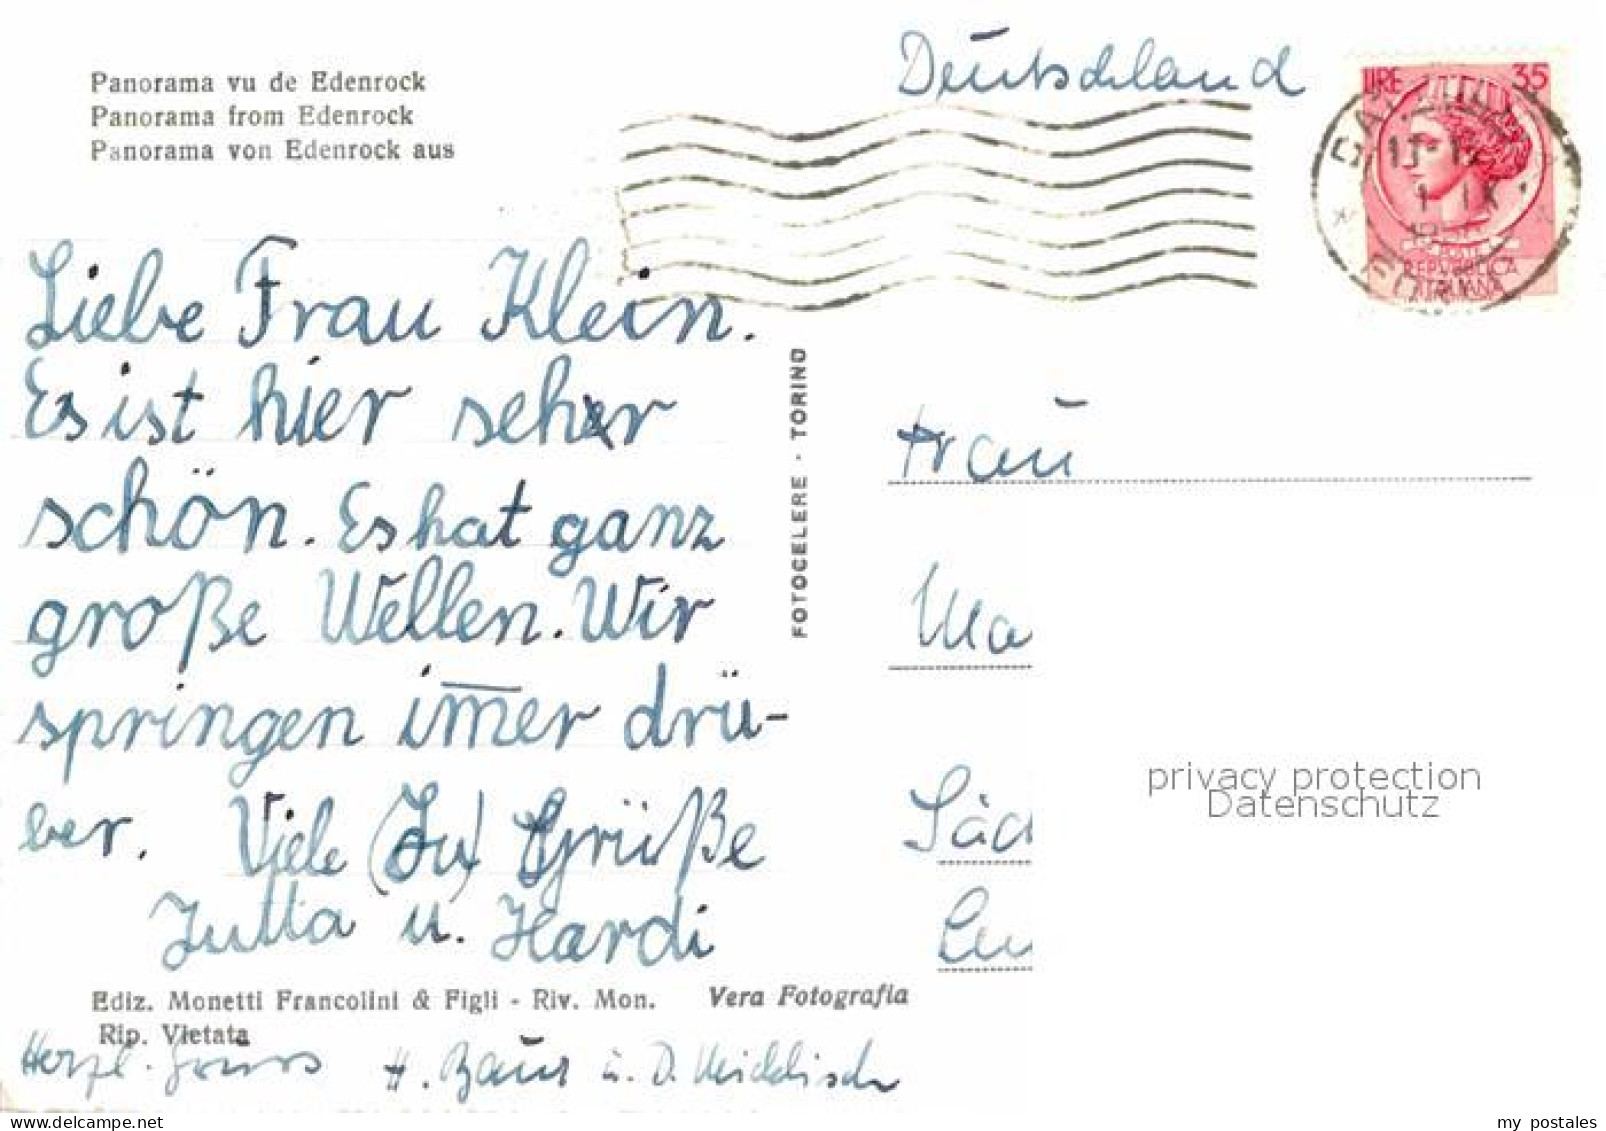 Panorama vu de Edenrock
Panorama from Edenrock
Panorama von Edenrock aus
Deutschland
LIRE 35
POSTE
REPVBBLICA
ITALIANA
Liebe Frau Klein.
Es ist hier sehr
schön. Es hat ganz
große Wellen. Wir
springen im̅er drü-
ber. Viele (Ju) Grüße
Jutta u. Hardi
FOTOCELERE - TORINO
Frau
Ma
Säc
privacy protection
Datenschutz
Ediz. Monetti Francolini & Figli - Riv. Mon. Vera Fotografia
Rip. Vietata
Herzl. Grüss H. Baur u. D.
my postales